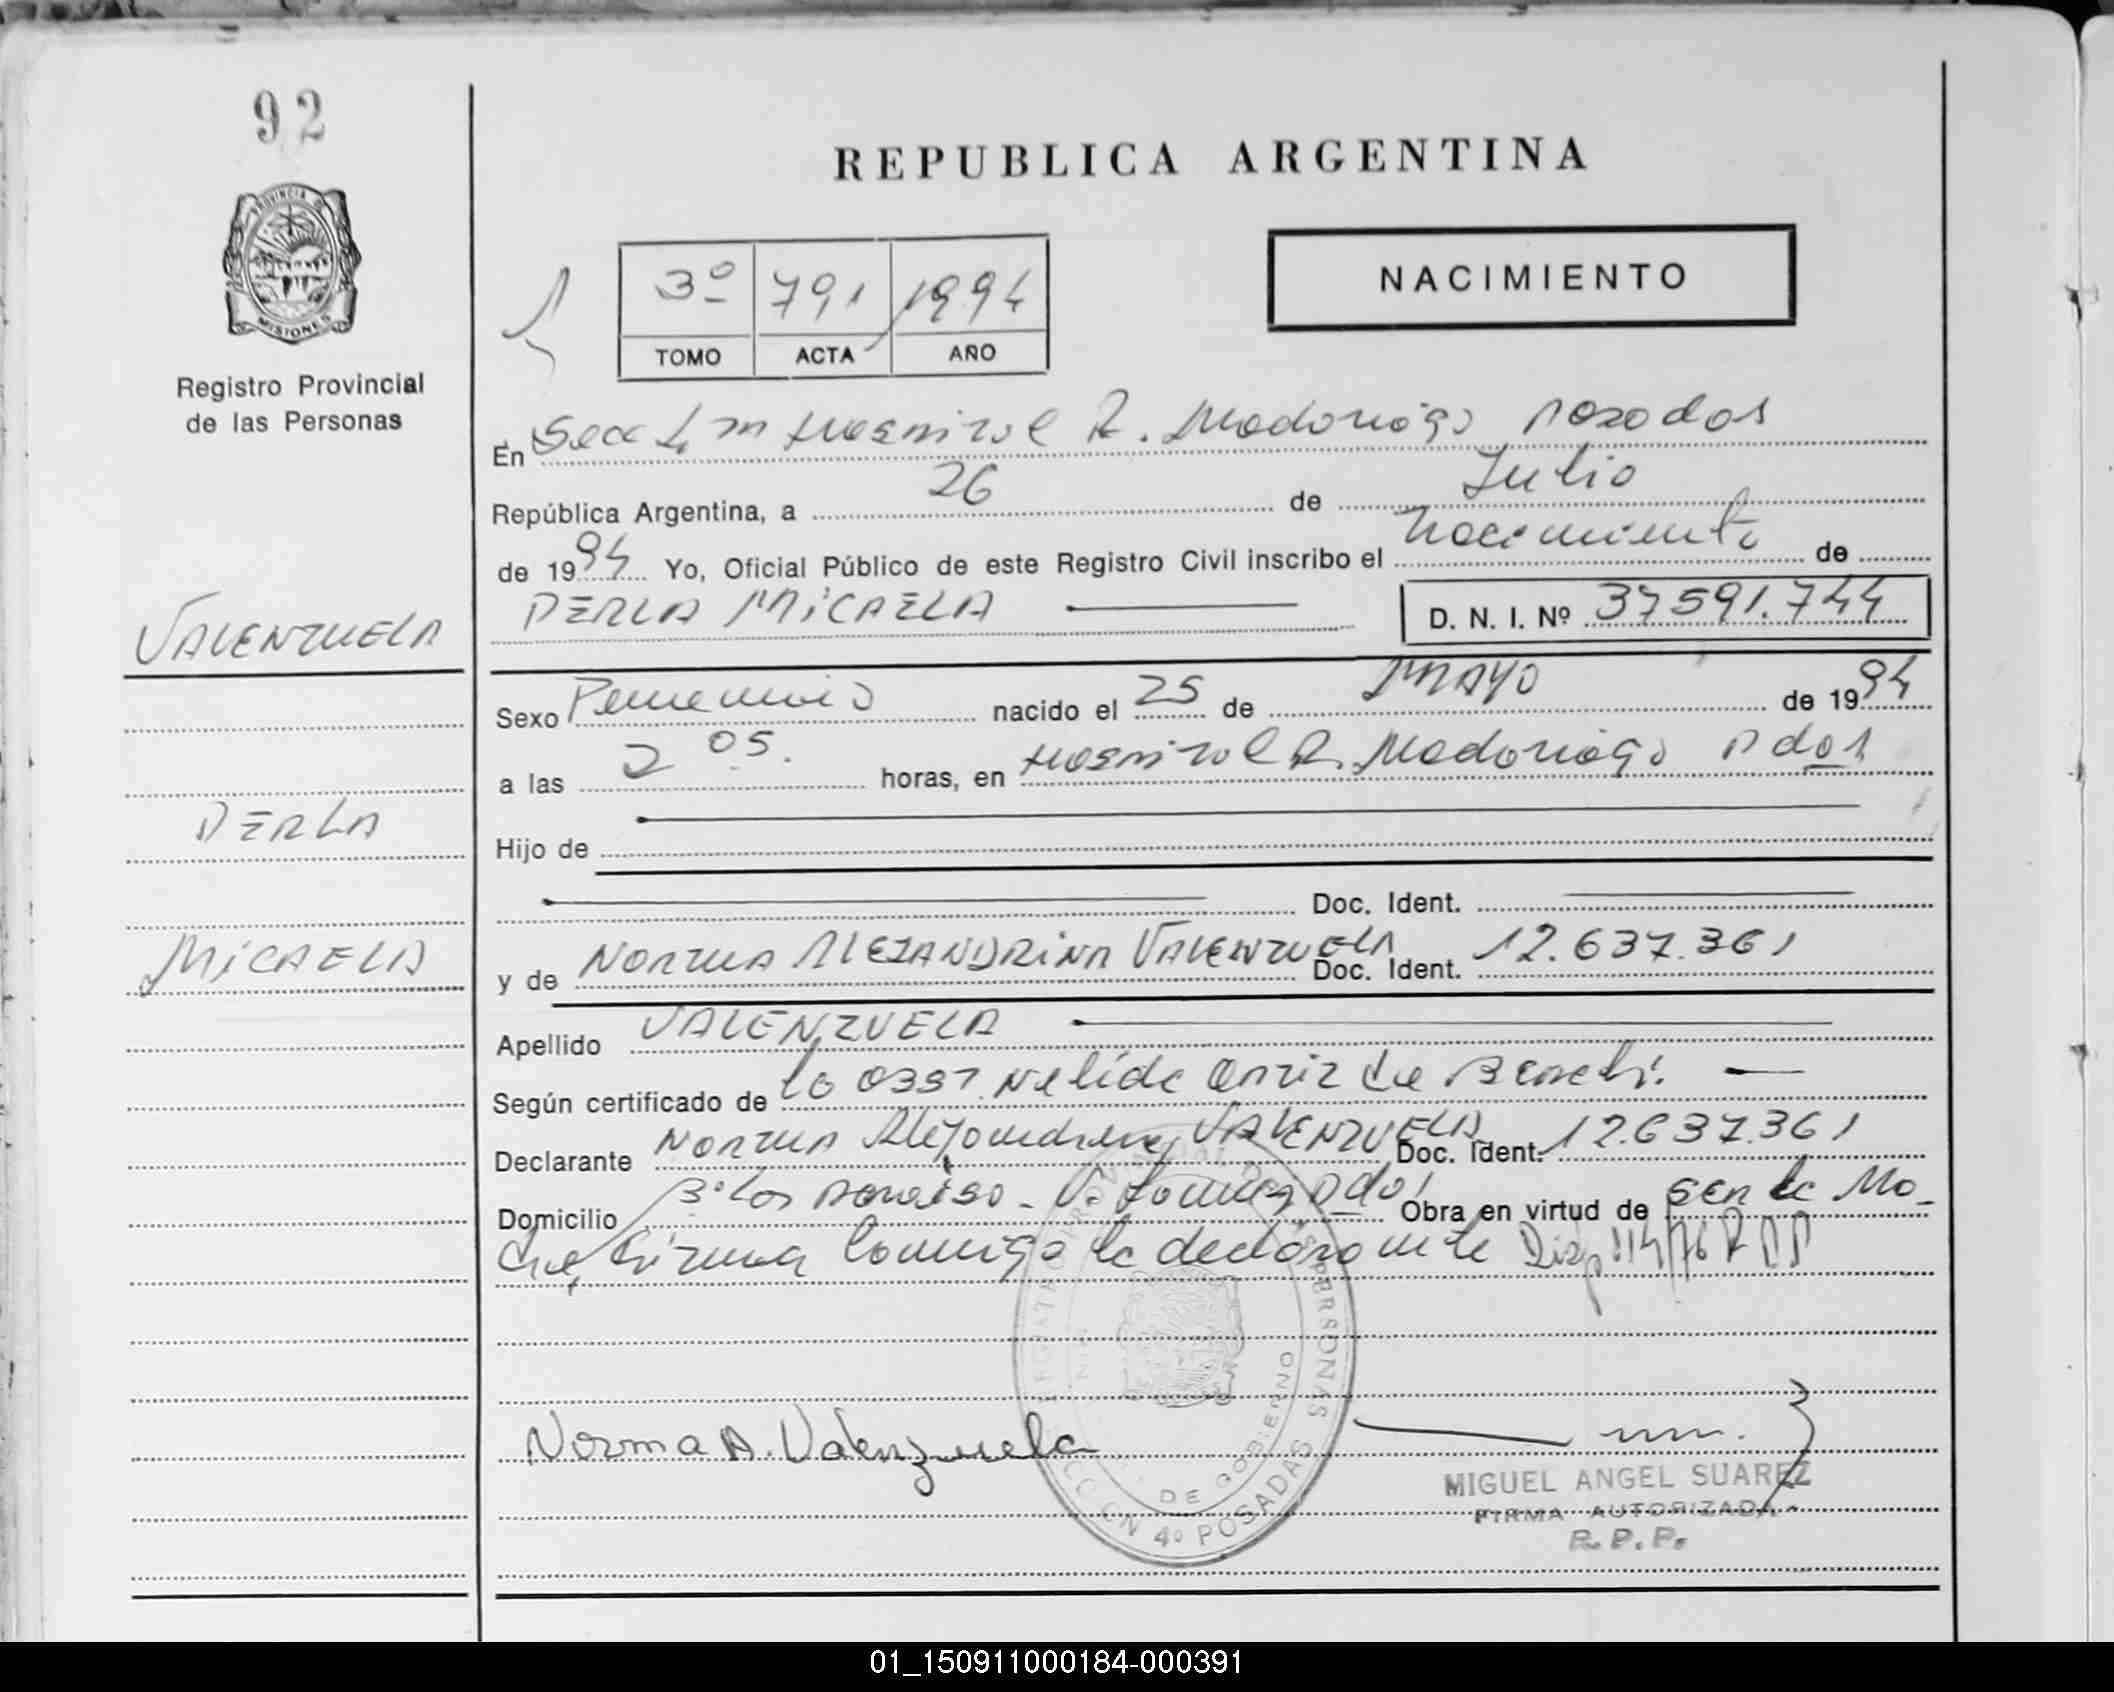 92
REPUBLICA ARGENTINA
PROVINCIA DE
MISIONES
Registro Provincial
de las Personas
3º 791 1994
TOMO ACTA AÑO
NACIMIENTO
En Secc 4, en Hospital R. Madariaga Posadas
República Argentina, a 26 de Julio
de 1994 Yo, Oficial Público de este Registro Civil inscribo el nacimiento de
PERLA MICAELA D. N. I. Nº 37591.744
VALENZUELA
PERLA
MICAELA
Sexo Femenino nacido el 25 de MAYO de 1994
a las 2 05. horas, en Hospital R. Madariaga Pdas
Hijo de
Doc. Ident.
y de NORMA ALEJANDRINA VALENZUELA Doc. Ident. 12.637.361
Apellido VALENZUELA
Según certificado de la Obst Nelida
Declarante NORMA Alejandrina VALENZUELA Doc. Ident. 12.637.361
Domicilio Bº Los Paraiso - Pdas Obra en virtud de ser la Ma-
dre, firma conmigo la declarante Disp 114/76 RPP
Norma A. Valenzuela
REGISTRO PROVINCIAL DE LAS PERSONAS
DE GOBIERNO
4º POSADAS
MIGUEL ANGEL SUAREZ
FIRMA AUTORIZADA
R. P. P.
01_150911000184-000391